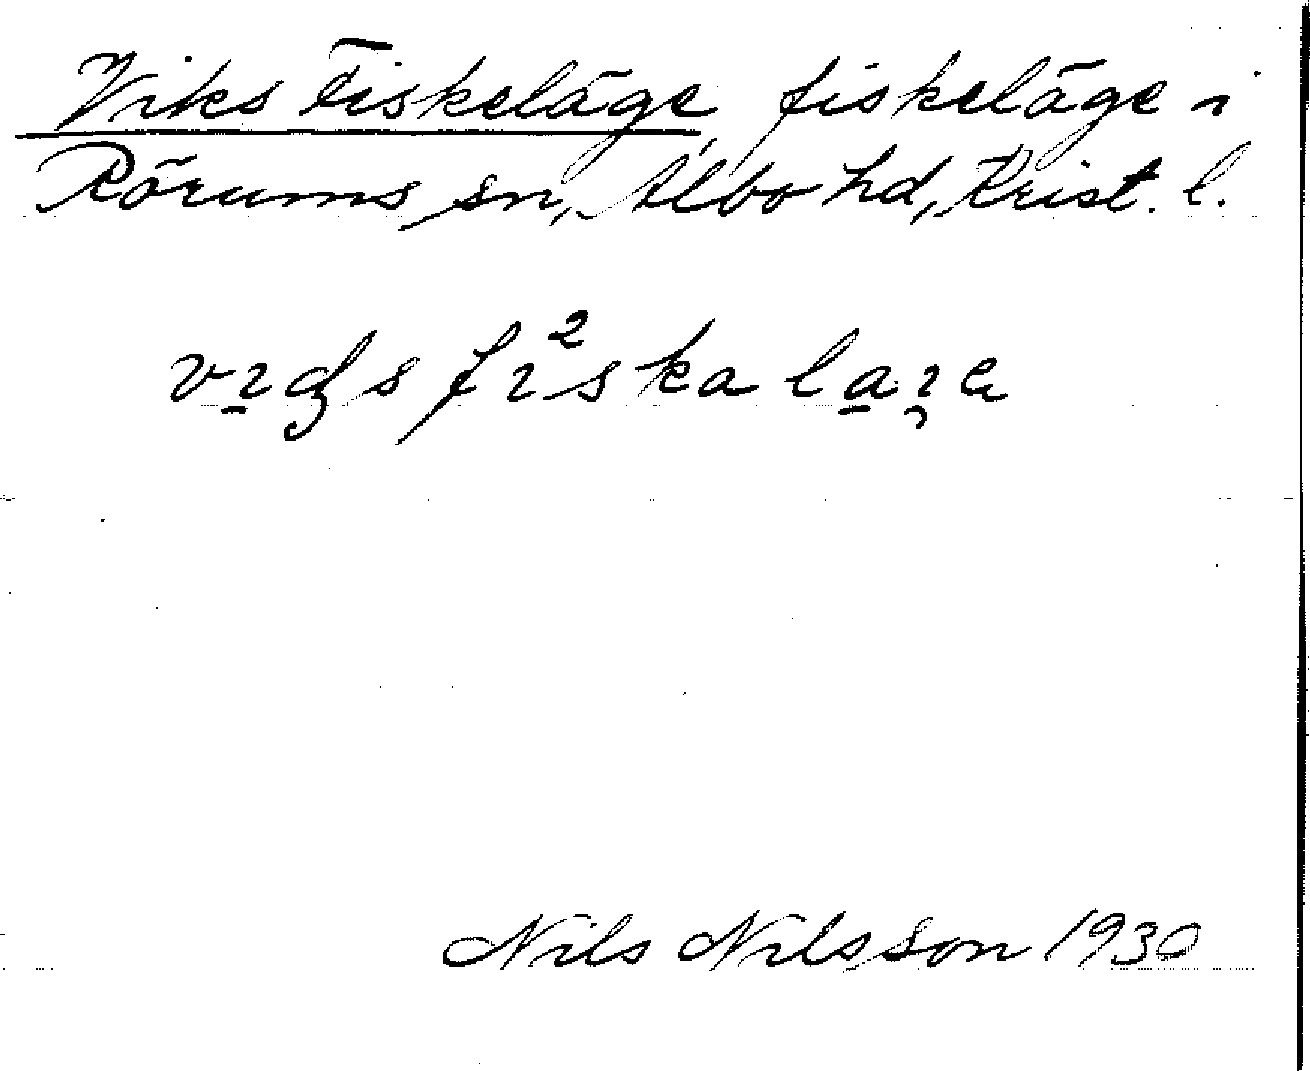 Viks Fiskeläge, fiskeläge i
Rörums sn, Albo hd, Krist. l.
fi²ska
Nils Nilsson 1930